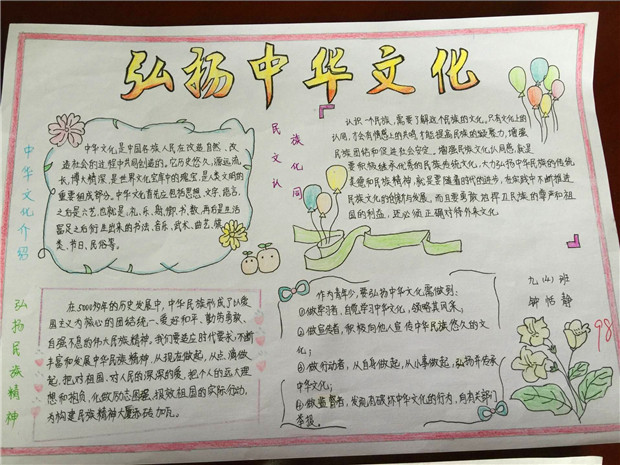 弘扬中华文化
中华文化介绍
中华文化,是中国各族人民在改造自然、改
造社会的过程中共同创造的。它历史悠久,源远流
长,博大精深,是世界文化宝库中的瑰宝,是人类文明的
重要组成部分。中华文化首先包括思想、文字、语言,
之后是六艺,也就是,礼、乐、射、御、书、数,再后是生活
富足之后衍生出来的书法、音乐、武术、曲艺、棋
类、节日、民俗等。
民族文化认同
认识一个民族,需要了解这个民族的文化。只有文化上的
认同,才会有情感上的共鸣才能提高民族的凝聚力,增强
民族团结和促进社会安定。增强民族文化认同感,就是
要积极继承优秀的民族传统文化,大力弘扬中华民族的传统
美德和民族精神,就是要随着时代的进步,在实践中不断推进
民族文化的创新与发展。而且要勇敢地捍卫民族的尊严和祖
国的利益,更必须正确对待外来文化。
弘扬民族精神
在5000多年的历史发展中,中华民族形成了以爱
国主义为核心的团结统一、爱好和平、勤劳勇敢、
自强不息的伟大民族精神。我们要适应时代要求,不断
丰富和发展中华民族精神,从现在做起,从点滴做
起,把对祖国、对人民的深深的爱,把个人的远大理
想和抱负,化做励志图强、报效祖国的实际行动,
为构建民族精神大厦添砖加瓦。
作为青少年,要弘扬中华文化需做到:
①做学习者,自觉学习中华文化,领略其风采;
②做宣传者,积极向他人宣传中华民族悠久的文
化;
③做行动者,从自身做起,从小事做起,弘扬并传承
中华文化;
④做监督者,发现有破坏中华文化的行为,向有关部门
举报。
九(4)班
钟恬静
98